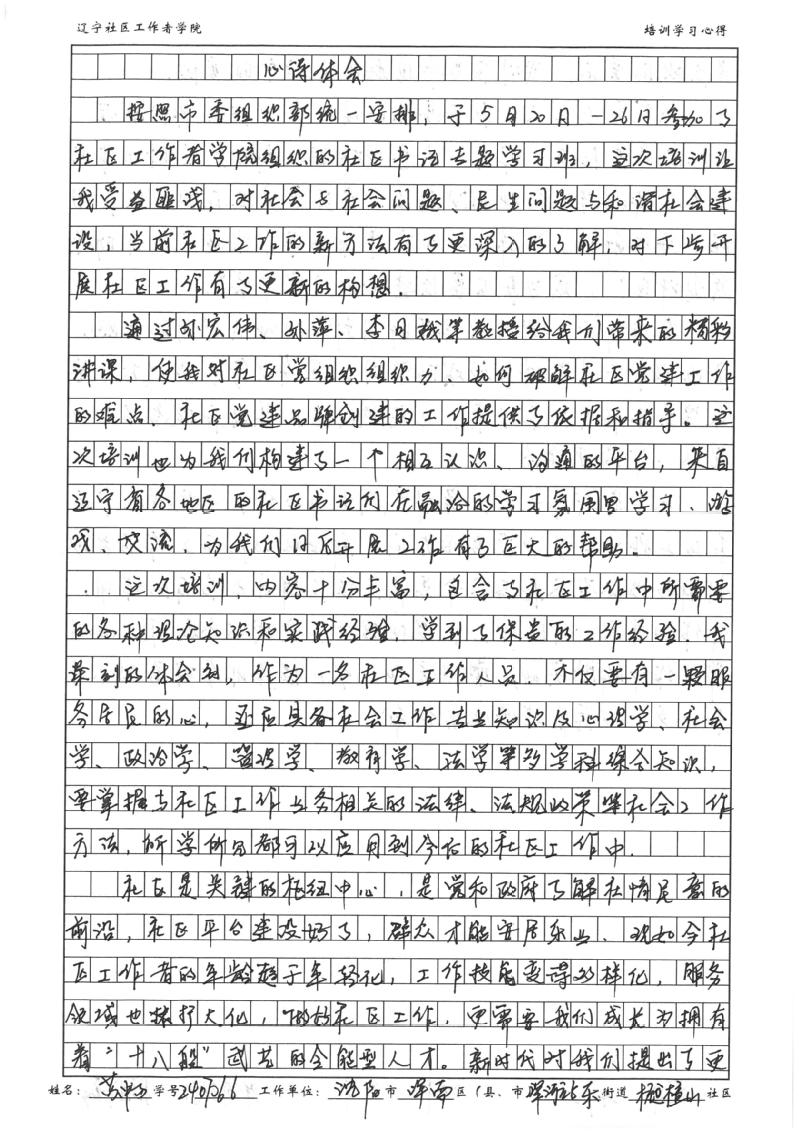 辽宁社区工作者学院 培训学习心得
心得体会
按照市委组织部统一安排，于5月20日-26日参加了
社区工作者学院组织的社区书记专题学习班，这次培训让
我受益匪浅，对社会与社会问题、民生问题与和谐社会建
设，当前社区工作的新方法有了更深入的了解，对下步开
展社区工作有了更新的构想.
通过孙宏伟、孙萍、李日娥等教授给我们带来的精彩
讲课，使我对社区党组织组织力、如何破解社区党建工作
的难点、社区党建品牌创建的工作提供了依据和指导。这
次培训也为我们构建了一个相互认识、沟通的平台，来自
辽宁省各地区的社区书记们在融洽的学习氛围里学习、游
戏、交流，为我们日后开展工作有了巨大的帮助。
这次培训，内容十分丰富，包含了社区工作中所需要
的各种理论知识和实践经验，学到了保贵的工作经验，我
深刻的体会到，作为一名社区工作人员，不仅要有一颗服
务居民的心，还应具备社会工作专业知识及心理学、社会
学、政治学、管理学、教育学、法学等多学科综合知识，
要掌握与社区工作业务相关的法律、法规政策性社会工作
方法，所学所看都可以应用到今后的社区工作中.
社区是关键的枢纽中心，是党和政府了解社情民意的
前沿，社区平台建设好了，群众才能安居乐业、现如今社
区工作者的年龄趋于年轻化，工作技能变得多样化，服务
领域也越扩大化，做好社区工作，更需要我们成长为拥有
着“十八般”武艺的全能型人才。新时代对我们提出了更
姓名： 学号 工作单位：沈阳市浑南区（县、市 街道 社区